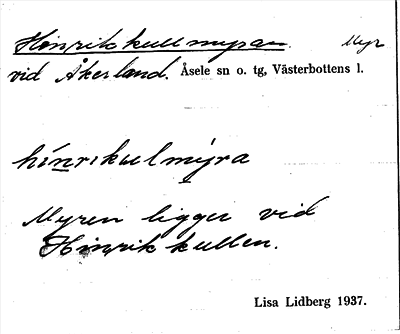 Hinrikskullmyran. Myr
vid Åkerland. Åsele sn o. tg, Västerbottens l.
hínrikulmỳra
Myren ligger vid
Hinrikkullen.
Lisa Lidberg 1937.